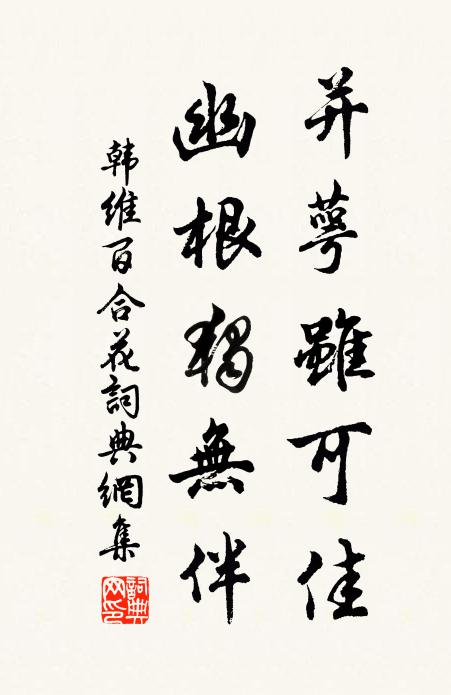 并萼雖可佳
幽根獨無伴
韩维百合花詞典網集
詞典網印